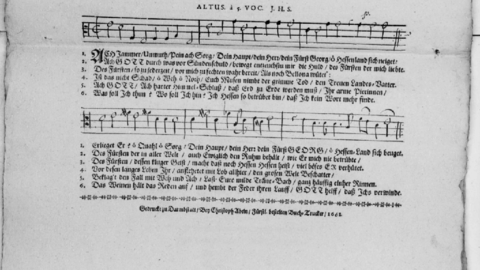 ALTUS. à 5. VOC. J. H. S.
1. ACH Jammer/Unmuth/Pein ach Sorg! Dein Haupt/dein Herz/dein Fürst Georg/ô Hessenland sich neiget/
2. Ach GOTT durch was vor Sünden bewegt die Huld/ des Fürsten der mich liebte.
3. Des Fürsten/ so zu jederzeit/ vor mich zu fechten wahr bereit/ Als noch Bellona wütet':
4. Ist das nicht Schad/ ô Weh ô Noth/ Euch Hessen nimbt der grimme Tod/ den Treuen Landes-Vatter.
5. Ach GOTT/ Ach harter Himmel-Schluß/ daß Erd zu Erde werden muß/
6. Was soll Ich thun? Wo soll Ich hin? Ich Hessen so betrübet bin/ daß Ich kein Wort mehr finde.
1. Erlieget Er? ô Quahl ô Sorg/ Dein Haupt/ dein Herz dein Fürst GEORG/ ô Hessen-Land sich beuget.
2. Des Fürsten der in aller Welt/ auch Ewiglich den Ruhm behält/ wie Er mich nie betrübte/
3. Des Fürsten/ dessen kluger Geist/ macht daß noch Hessen Hessen heist/ viel böses ER verhütet.
4. Vor dessen langes Leben Ihr/ den großen Welt Beschatter/
5. Beklagt den Fall mit Weh und Ach/ Last Eure milde Träne-Bach/ ganz häuffig einher Rinnen.
6. Das Weinen hält das Reden auf/ und hembt der Feder ihren Lauff/ GOTT helff/ daß Ichs verwinde.
Gedruckt zu Darmbstatt/ Bey Christoph Abeln/ Fürstl. bestelten Buch-Trucker/ 1661.